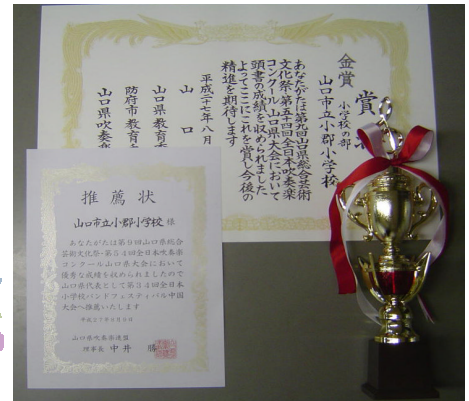 賞
小学校の部
金賞
山口市立小郡小学校
あなたがたは第九回山口県総合芸術
文化祭・第五十四回全日本吹奏楽
コンクール山口県大会において
頭書の成績を収められました
よってここにこれを賞し今後の
精進を期待します
平成二十七年八月
山口
山口県教育
防府市教育
山口県吹奏楽
推薦状
山口市立小郡小学校 様
あなたがたは第9回山口県総合
芸術文化祭・第54回全日本吹奏楽
コンクール山口県大会において
優秀な成績を収められましたので
山口県代表として第34回全日本
小学校バンドフェスティバル中国
大会へ推薦いたします
平成27年8月
山口県吹奏楽連盟
理事長 中井 勝